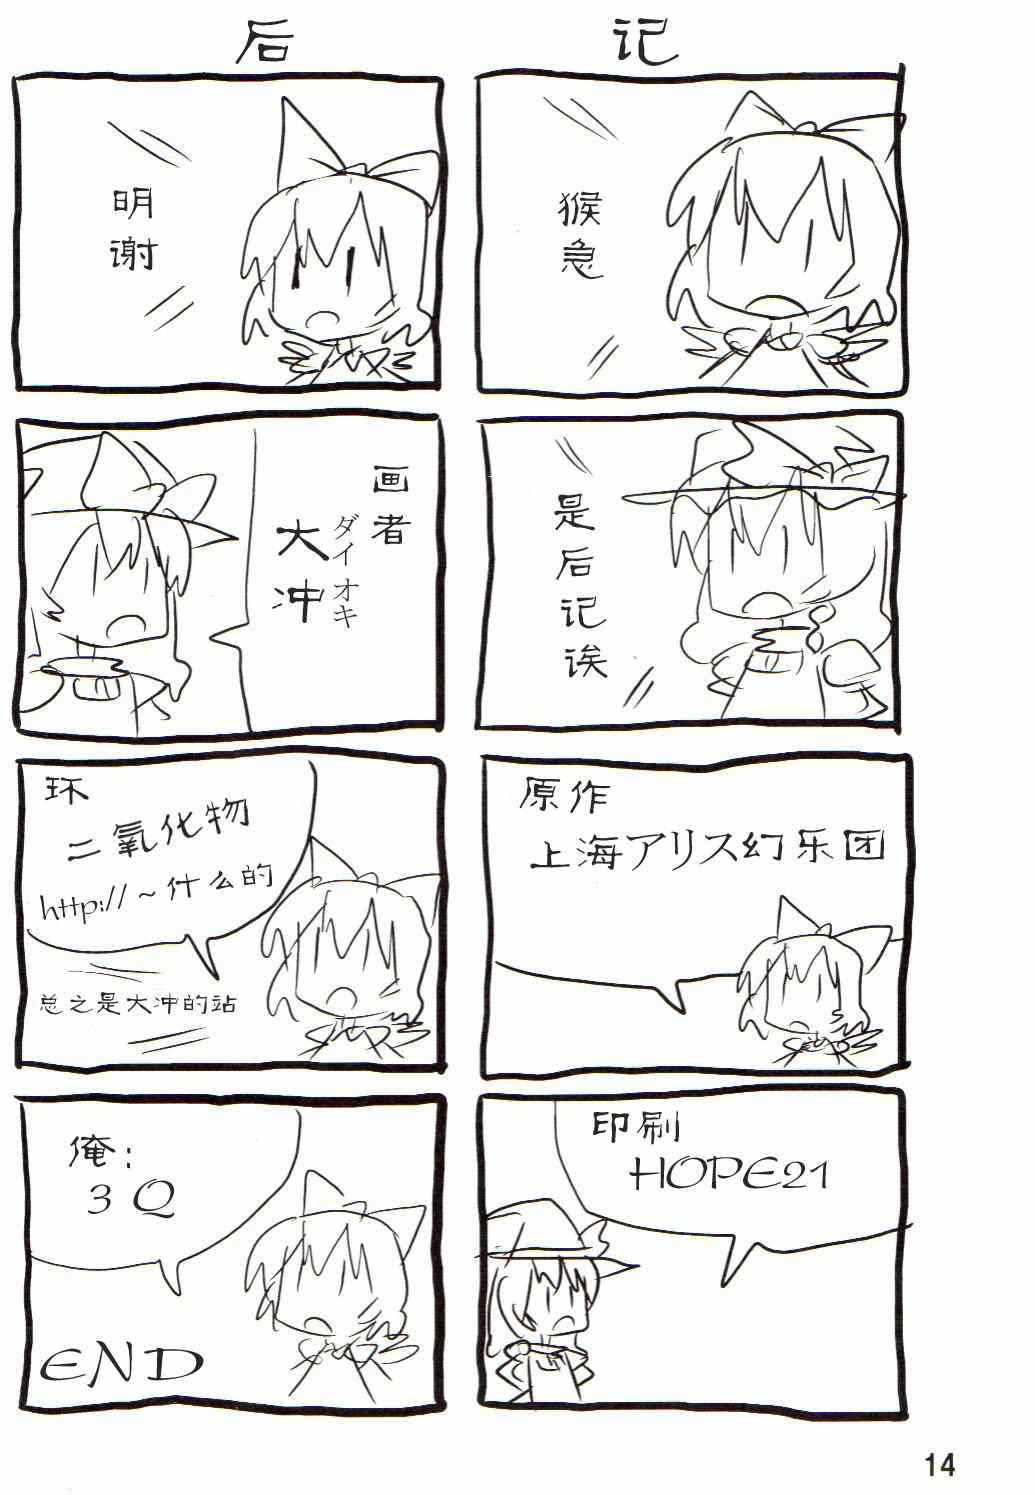 后记
猴急
是后记诶
原作
上海アリス幻乐团
印刷
HOPE21
明谢
画者
大冲
ダイオキ
环
二氧化物
http://~什么的
总之是大冲的站
俺:
3Q
END
14